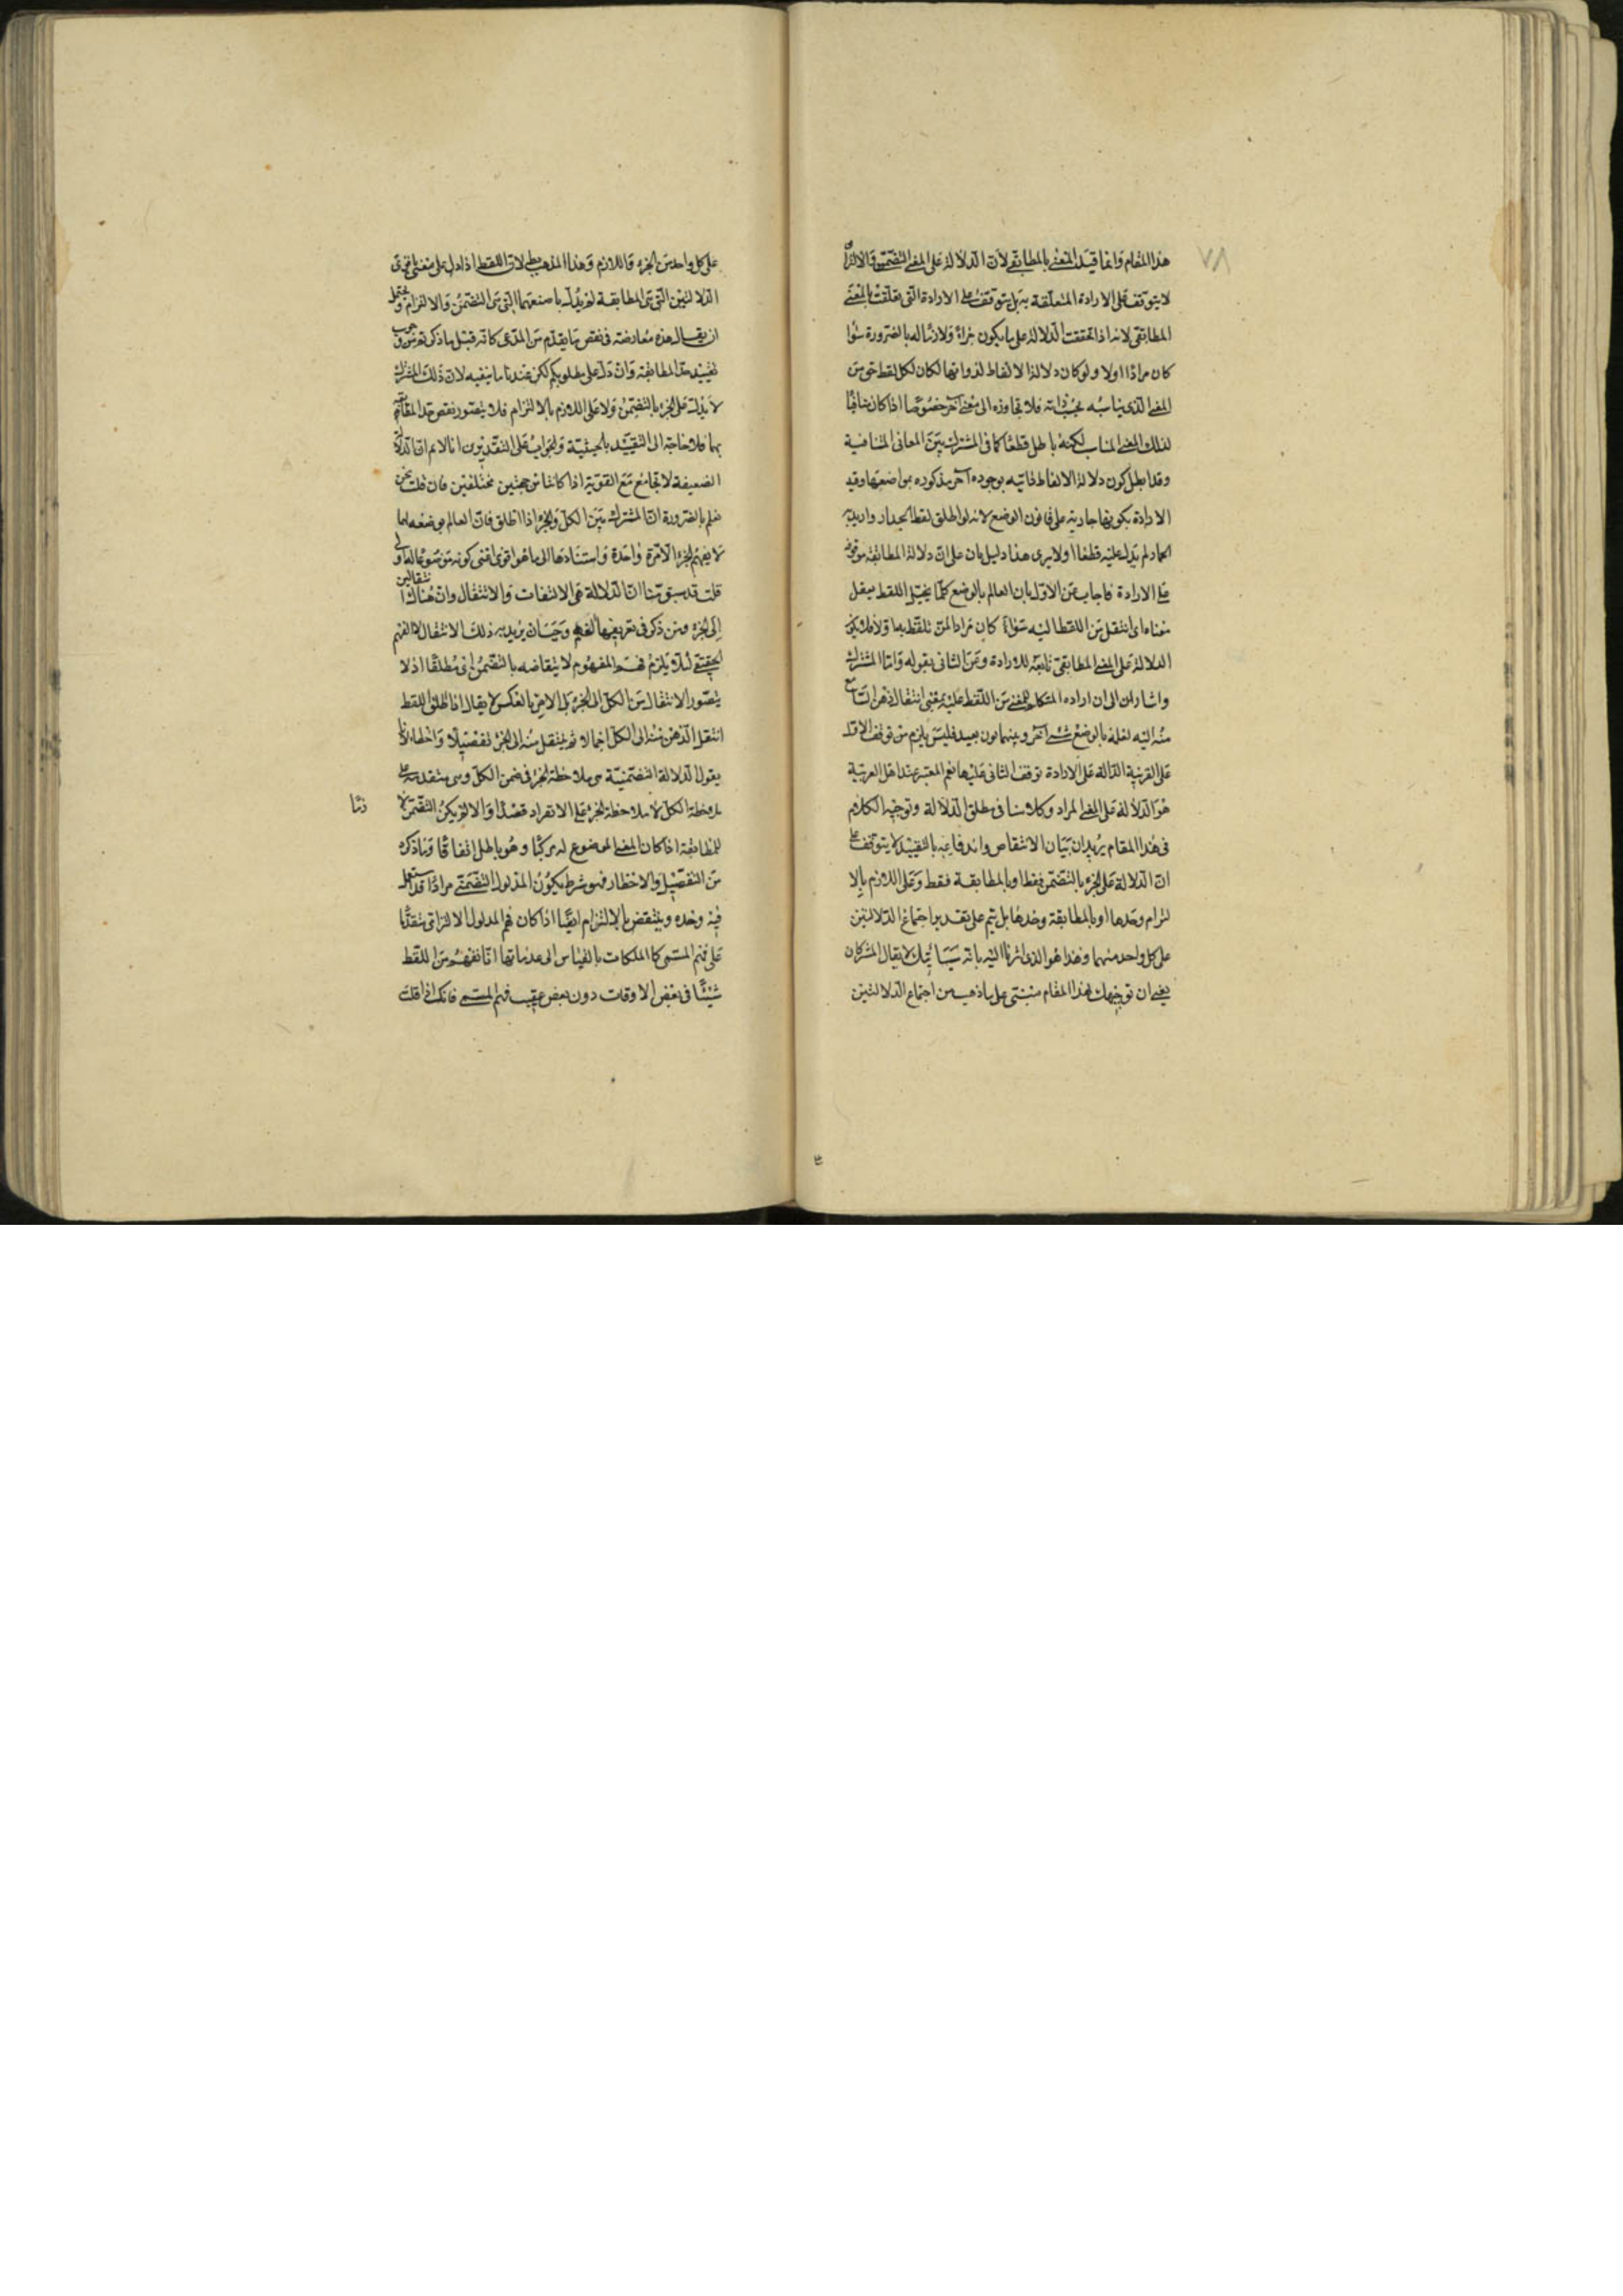 ٧٨
هذا المقام وانما قيد المعنى بالمطابقى لان الدلالة على المعنى التضمنى والالتزامى
لا يتوقف على الارادة المتعلقة به بل يتوقف على الارادة التى تعلقت بالمعنى
المطابقى لانه اذا تحققت الدلالة على ما يكون جزاء ولازما له بالضرورة سواء
كان مرادا اولا ولو كان دلالة الالفاظ لذواتها لكان لكل لفظ حق من
المعنى الذى يناسبه بحسب ذاته فلا تجاوزه الى معنى آخر خصوصا اذا كان منافيا
لذلك المعنى المناسب لكنه باطل قطعا كما فى المشترك بين المعانى المتنافية
وقد ابطل كون دلالة الالفاظ ذاتيه بوجوده آخر مذكوره مواضعها وقيد
الارادة بكونها جارية على قانون الوضع لانه لو اطلق لفظ الجدار واريد به
الحمار لم يدل عليه قطعا اولا يرى هذا دليل بان على ان دلالة المطابقة موقوفة
على الارادة فاجاب عن الاول بان العالم بالوضع كلما يتخيل اللفظ يعقل
معناه اى انتقل من اللفظ اليه سواء كان مرادا لمن تلفظ بها ولا فلا يكون
الدلالة على المعنى المطابقى تابعة للارادة وعن الثانى بقوله واما المشترك
واشار الى ان اراده المتكلم للمعنى من اللفظ عليه بمعنى انتقال ذهن السامع
منه اليه لعلمه بالوضع شىء آخر وبينهما بون بعيد فليس يلزم من توقف الاول
على القرينة الدالة على الارادة توقف الثانى عليها نعم المعتبر عند اهل العربية
هو الدلالة على المعنى المراد وكلامنا فى مطلق الدلالة وتوجيه الكلام
فى هذا المقام يريد ان بيان الانتقاض واندفاعه بالتقييد لا يتوقف على
ان الدلالة على الجزء بالتضمن فقط او بالمطابقة فقط وعلى اللازم بالا
لتزام وحدها او بالمطابقة وحدها بل يتم على تقدير اجتماع الدلالتين
على كل واحد منهما وهذا هو الذى اشرنا اليه بانه سيأتيك لا يقال المشركان
يعنى ان توجيهك لهذا المقام مبنى على ما ذهب من اجتماع الدلالتين
على كل واحد من الجزء واللازم وهذا المذهب بط لان اللفظ اذا دل على معنى باقوى
الدلالتين التى هى المطابقة لم يدل باضعفهما التى هى التضمن والالتزام ويحتمل
ان يقال هذه معارضة فى نقض ما يقدم من المدعى كانه قيل ما ذكرتم من وجوب
تقييد حد المطابقة وان دل على مطلوبكم لكن عندنا ما ينفيه لان ذلك المشترك
لا يدل على الجزء بالتضمن ولا على اللازم بالالتزام فلا يتصور نقض حد المطابقة
بهما فلا حاجة الى التقييد بالحيثية والجواب على التقديرين انا لا نم ان الدلالة
الضعيفة لا تجامع مع القوية اذا كانتا من جهتين مختلفتين فان قلت نحن
نعلم بالضرورة ان المشترك بين الكل والجزء اذا اطلق فان العالم بوضعه لهما
لا يفهم الجزء الا مرة واحدة واستنادها الى ما هو اقوى اعنى كونه موضوعا له اولى
قلت قد سبق منا ان الدلالة هى الالتفات والانتقال وان هناك انتقالين
الى الجزء ومن ذكر فى تعريفها الفهم وجب ان يريد به ذلك الانتقال لا الفهم
الحقيقى لئلا يلزم فهم المفهوم لا يتقاضه بالتضمن اى مطلقا اذ لا
يتصور الانتقال من الكل الى الجزء بل الامر بالعكس لا يقال اذا اطلق اللفظ
انتقل الذهن منه الى الكل اجمالا ثم ينتقل منه الى الجزء تفصيلا واخطارا لانا
يقول الدلالة التضمنية هى ملاحظة الجزء فى ضمن الكل وهى متقدمة على
ملاحظة الكل لا ملاحظة الجزء على الانفراد قصدا والا لم يكن التضمن لا
زما
للمطابقة اذا كان المعنى الموضوع له مركبا وهو باطل اتفاقا وما ذكره
من التفصيل والاخطار فهو شرط يكون المدلول التضمنى مرادا قد استعمل
فيه وحده وينتقض بالالتزام ايضا اذا كان فهم المدلول الالتزامى متقدما
على فهم المسمى كما الملكات بالقياس الى عدماتها انا نفهم من اللفظ
شيئا فى بعض الاوقات دون بعض عقيب فهم المسمى فانك اذا قلت